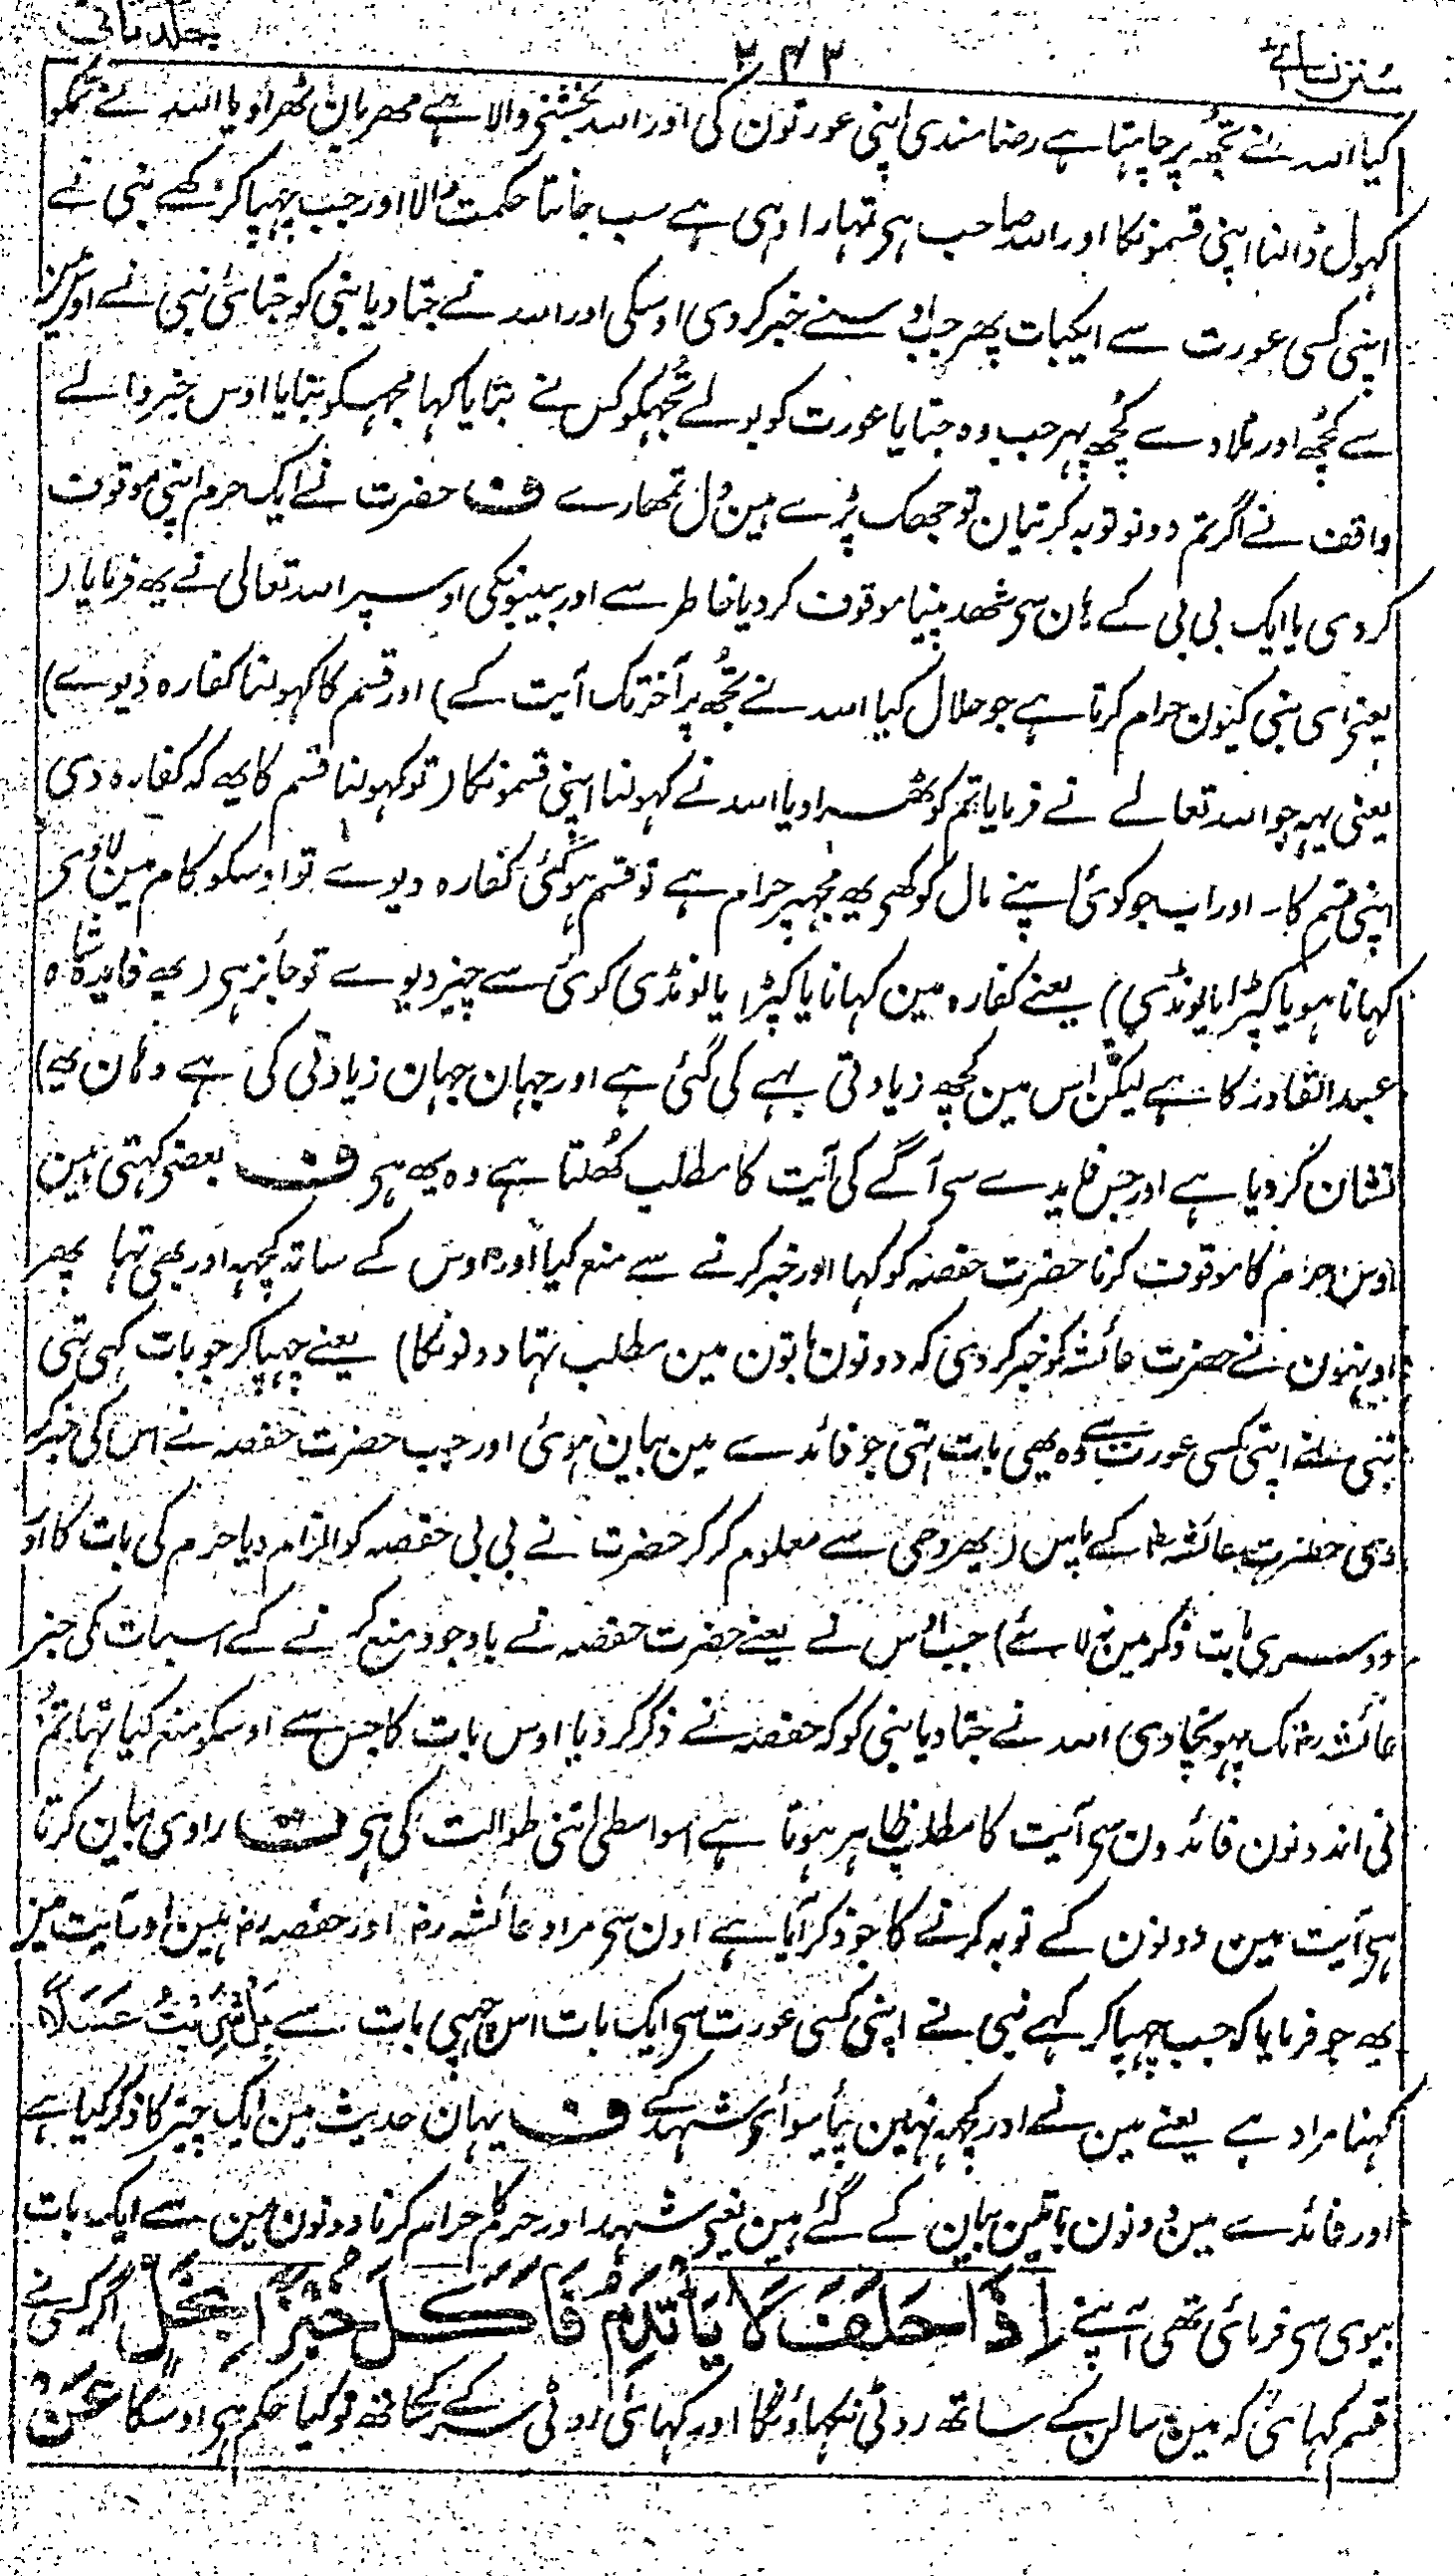 سنن نسائے ۲۴۲ جلد ثانی
کیا اللہ نے تجھ پر چاہتا ہے رضا مندی اپنی عورتون کی اور اللہ بخشنے والا ہے مھربان ٹھراو یا اللہ نے تمکو
کہول ڈالنا اپنی قسمونکا اور اللہ صاحب ہی تمہارا وہی ہے سب جانتا حکمت والا اور جب چہپا کر کہے نبی نے
اپنی کسی عورت سے ایکبات پھر جب اوسنے خبر کردی اوسکی اور اللہ نے جتا دیا نبی کو جتائی نبی نے اوس مین
سے کچھ اور ٹلا دے کچھ پہر جب وہ جتایا عورت کو بولے تجھکو کس نے بتایا کہا مجہکو بتایا اوس خبر والے
واقف نے اگر تم دونو توبہ کرتیان تو جھک پڑے ہین دل تمھارے ف حضرت نے ایک حرم اپنی موقوف
کردی یا ایک بی بی کے ہان سی شھد پینا موقوف کردیا خاطر سے اور بیبیونکی اوسپر اللہ تعالی نے یھ فرمایا (
یعنے ای نبی کیون حرام کرتا ہے جو حلال کیا اللہ نے تجھ پر آخر تک آیت کے) اور قسم کا کہولنا کفارہ دیوے)
یعنی یہہ جو اللہ تعالے نے فرمایا تم کو ٹھراو یا اللہ نے کہولنا اپنی قسمونکا (تو کہولنا قسم کا یھ کہ کفارہ دی
اپنی قسم کا۔ اور اب جو کوئی اپنے مال کو کھی یھ مجہپر حرام ہے تو قسم ہوگئی کفارہ دیوے تو اوسکو کام مین لاوی
کہانا ہو یا کپڑا یا لونڈی)) یعنے کفارہ مین کہانا یا کپڑا یا لونڈی کوئی سے چیز دیوے تو جائز ہی (یھ فایدہ شاہ
عبد القادر کا ہے لیکن اس مین کچھ زیادتی بہے کی گئی ہے اور جہان جہان زیادتی کی ہے وہان یھ)
نشان کردیا ہے اور جس فایدے سی آگے کی آیت کا مطلب کھلتا ہے وہ یھ ہی ف بعضی کہتی ہین
اوس حرم کا موقوف کرنا حضرت حفصہ کو کہا اور خبر کرنے سے منع کیا اور اوس کے ساتہ کچہہ اور بھی تہا پھر
اونہون نے حضرت عائشہ کو خبر کردی کہ دونون باتون مین مطلب تہا دونونکا) یعنے چہپا کر جو بات کہی تہی
نبی نے اپنی کسی عورت سے وہ یھی بات تہی جو فائدے مین بیان ہوئی اور جب حضرت حفصہ نے اس کی خبر کر
دی حضرت عائشہ کے پاس (پھر وحی سے معلوم کر کر حضرت نے بی بی حفصہ کو الزام دیا حرم کی بات کا او
دوسری بات ذکر مین نہ لائے) جب اس نے یعنے حضرت حفصہ نے باوجود منع کرنے کے اسبات کی خبر
عائشہ رض تک پہونچادی اللہ نے جتا دیا نبی کو کہ حفصہ نے ذکر کردیا اوس بات کا جس سے اوسکو منع کیا تہا تم
نی اند دونون فائدون سی آیت کا مطلب ظاہر ہوتا ہے اسواسطی اتنی طوالت کی ہی ف راوی بیان کرتا
ہی آیت مین دونون کے توبہ کرنے کا جو ذکر آیا ہے اون سی مراد عائشہ رض اور حفصہ رض ہین اور آیت مین
یھ جو فرمایا کہ جب چہپا کر کہے نبی نے اپنی کسی عورت سی ایک بات اس چہپی بات سے بَلْ شَرِبْتُ عَسَلًا
کہنا مراد ہے یعنے مین نے اور کچہہ نہین پیا سوائی شہد کے ف یہان حدیث مین ایک چیز کا ذکر کیا ہے
اور فائدے مین دونون باتین بیان کے گئے ہین یعنی شہد اور حرم کا حرام کرنا دونون مین سے ایک بات
بیوی سی فرمائی تھی آپنے اِذَا حَلَفَ لَا یَأْتَدِمُ فَاَکَلَ خُبْزًا بِخَلٍّ اگر کسی نے
قسم کہائی کہ مین سالن کے ساتھ روٹی نکہاؤنگا اور کہائی روٹی سرکے کے ساتھ تو کیا حکم ہی اوسکا عَنْ